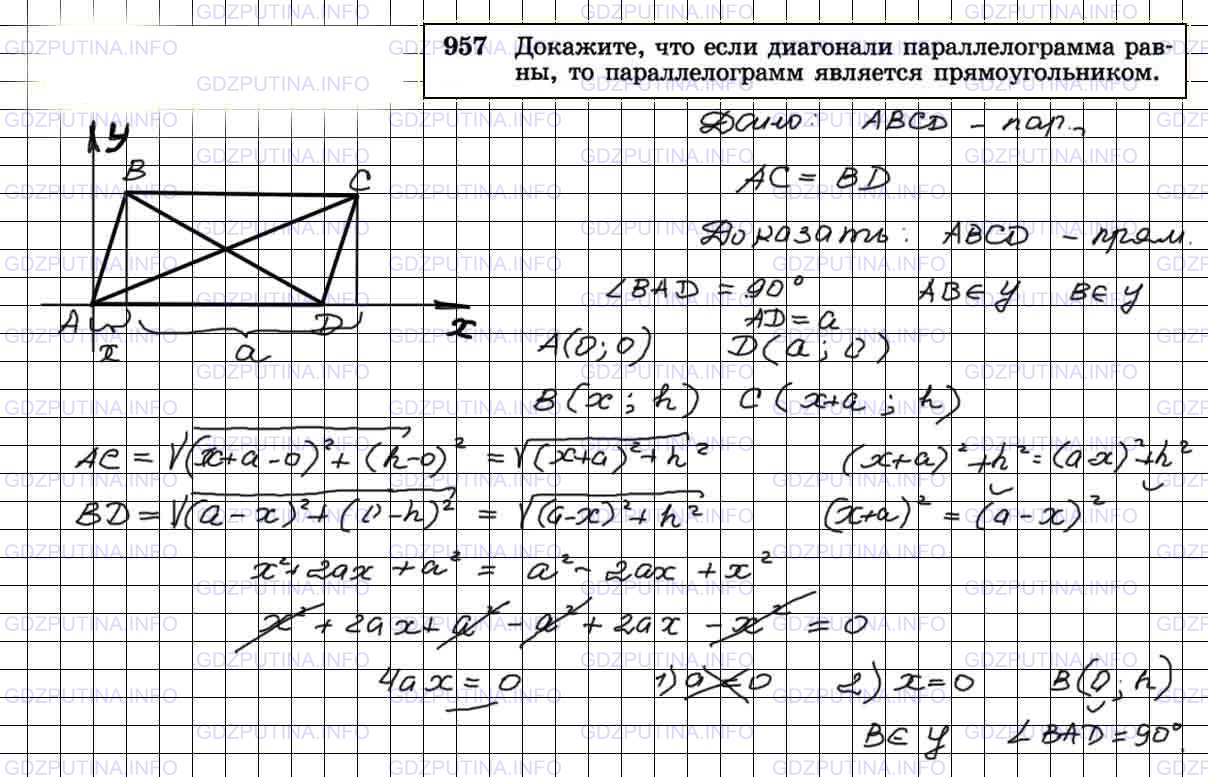 957 Докажите, что если диагонали параллелограмма рав-
ны, то параллелограмм является прямоугольником.
Дано: ABCD - пар.
AC = BD
Доказать: ABCD - прям.
∠BAD = 90° AB ∈ y B ∈ y
AD = a
A(0; 0) D(a; 0)
B(x; h) C(x+a; h)
y
B
C
A
D
x
x
a
AC = √(x+a-0)²+(h-0)² = √(x+a)²+h² (x+a)²+h² = (a-x)²+h²
BD = √(a-x)²+(0-h)² = √(a-x)²+h² (x+a)² = (a-x)²
x²+2ax+a² = a²-2ax+x²
x²+2ax+a²-a²+2ax-x² = 0
4ax = 0 1) a = 0 2) x = 0 B(0; h)
B ∈ y ∠BAD = 90°.
GDZPUTINA.INFO